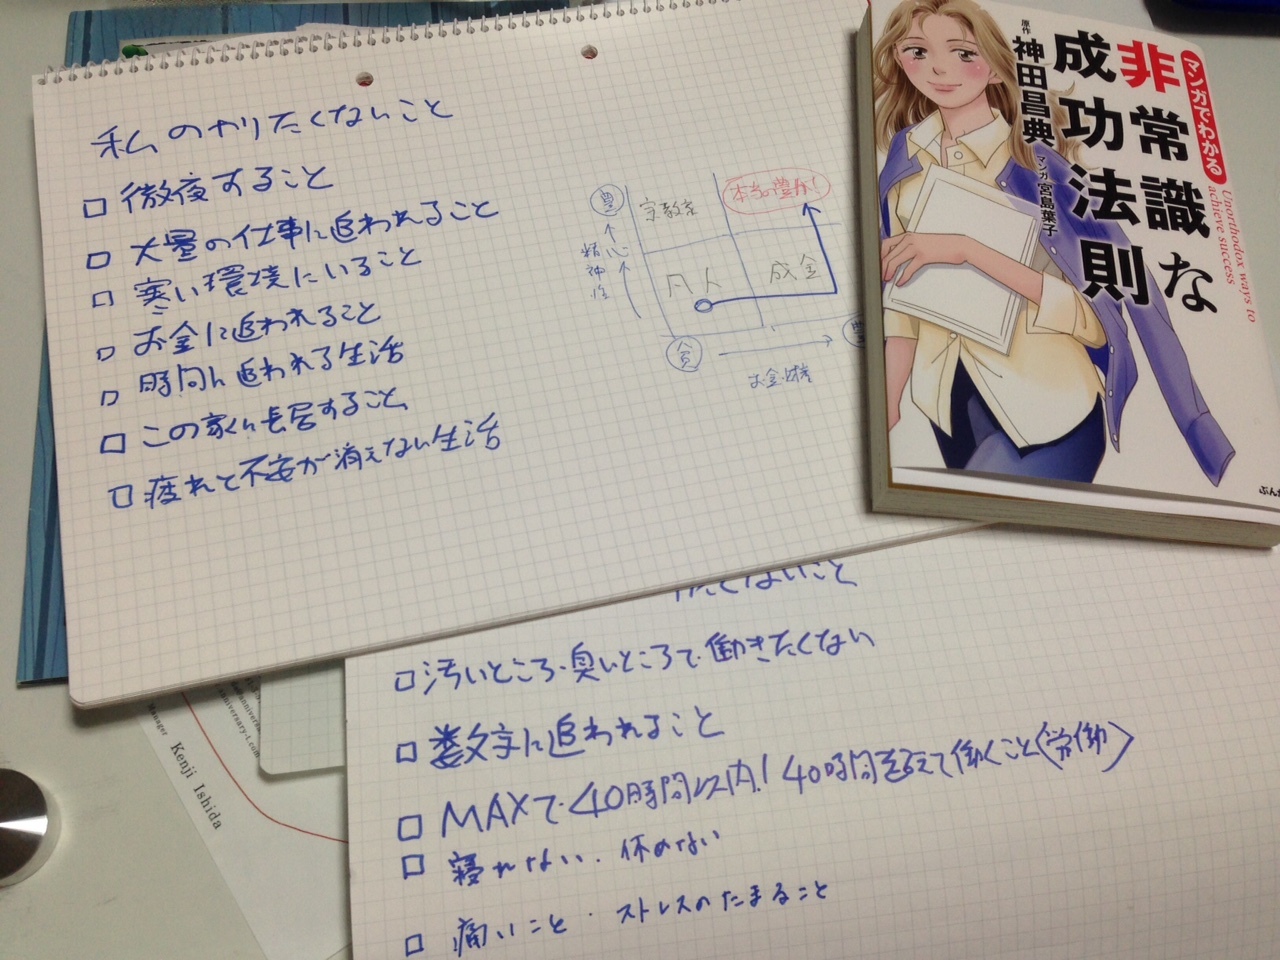 私のやりたくないこと
□ 徹夜すること
□ 大量の仕事に追われること
□ 寒い環境にいること
□ お金に追われること
□ 時間に追われる生活
□ この家に長居すること
□ 疲れと不安が消えない生活
豊
宗教家
本当の豊かさ!
精神性
心
凡人
成金
貧
豊
お金
マンガでわかる
非常識な
成功法則
Unorthodox ways to
achieve success
原作 神田昌典
マンガ 宮島葉子
ぶん
くないこと
□ 汚いところ・臭いところで働きたくない
□ 数字に追われること
□ MAXで40時間以内! 40時間を超えて働くこと(労働)
□ 寝れない・休めない
□ 痛いこと・ストレスのたまること
Manager
Kenji Ishida